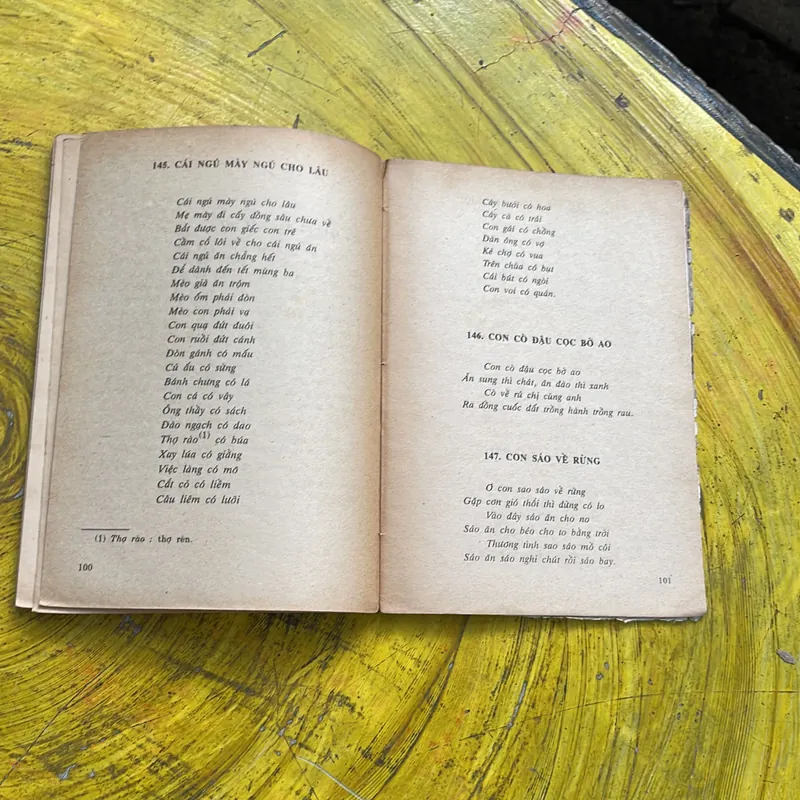 145. CÁI NGỦ MÀY NGỦ CHO LÂU
Cái ngủ mày ngủ cho lâu
Mẹ mày đi cấy đồng sâu chưa về
Bắt được con giếc con trê
Cầm cổ lôi về cho cái ngủ ăn
Cái ngủ ăn chẳng hết
Để dành đến tết mùng ba
Mèo già ăn trộm
Mèo ốm phải đòn
Mèo con phải vạ
Con quạ đứt đuôi
Con ruồi đứt cánh
Đòn gánh có mấu
Củ ấu có sừng
Bánh chưng có lá
Con cá có vây
Ông thầy có sách
Đào ngạch có dao
Thợ rào(1) có búa
Xay lúa có giằng
Việc làng có mõ
Cắt cỏ có liềm
Câu liêm có lưỡi
(1) Thợ rào : thợ rèn.
100
Cây bưởi có hoa
Cây cà có trái
Con gái có chồng
Đàn ông có vợ
Kẻ chợ có vua
Trên chùa có bụt
Cái bút có ngòi
Con voi có quản.
146. CON CÒ ĐẬU CỌC BỜ AO
Con cò đậu cọc bờ ao
Ăn sung thì chát, ăn đào thì xanh
Cò về rủ chị cùng anh
Ra đồng cuốc đất trồng hành trồng rau.
147. CON SÁO VỀ RỪNG
Ơ con sao sáo về rừng
Gặp cơn gió thổi thì đừng có lo
Vào đây sáo ăn cho no
Sáo ăn cho béo cho to bằng trời
Thương tình sao sáo mồ côi
Sáo ăn sáo nghỉ chút rồi sáo bay.
101